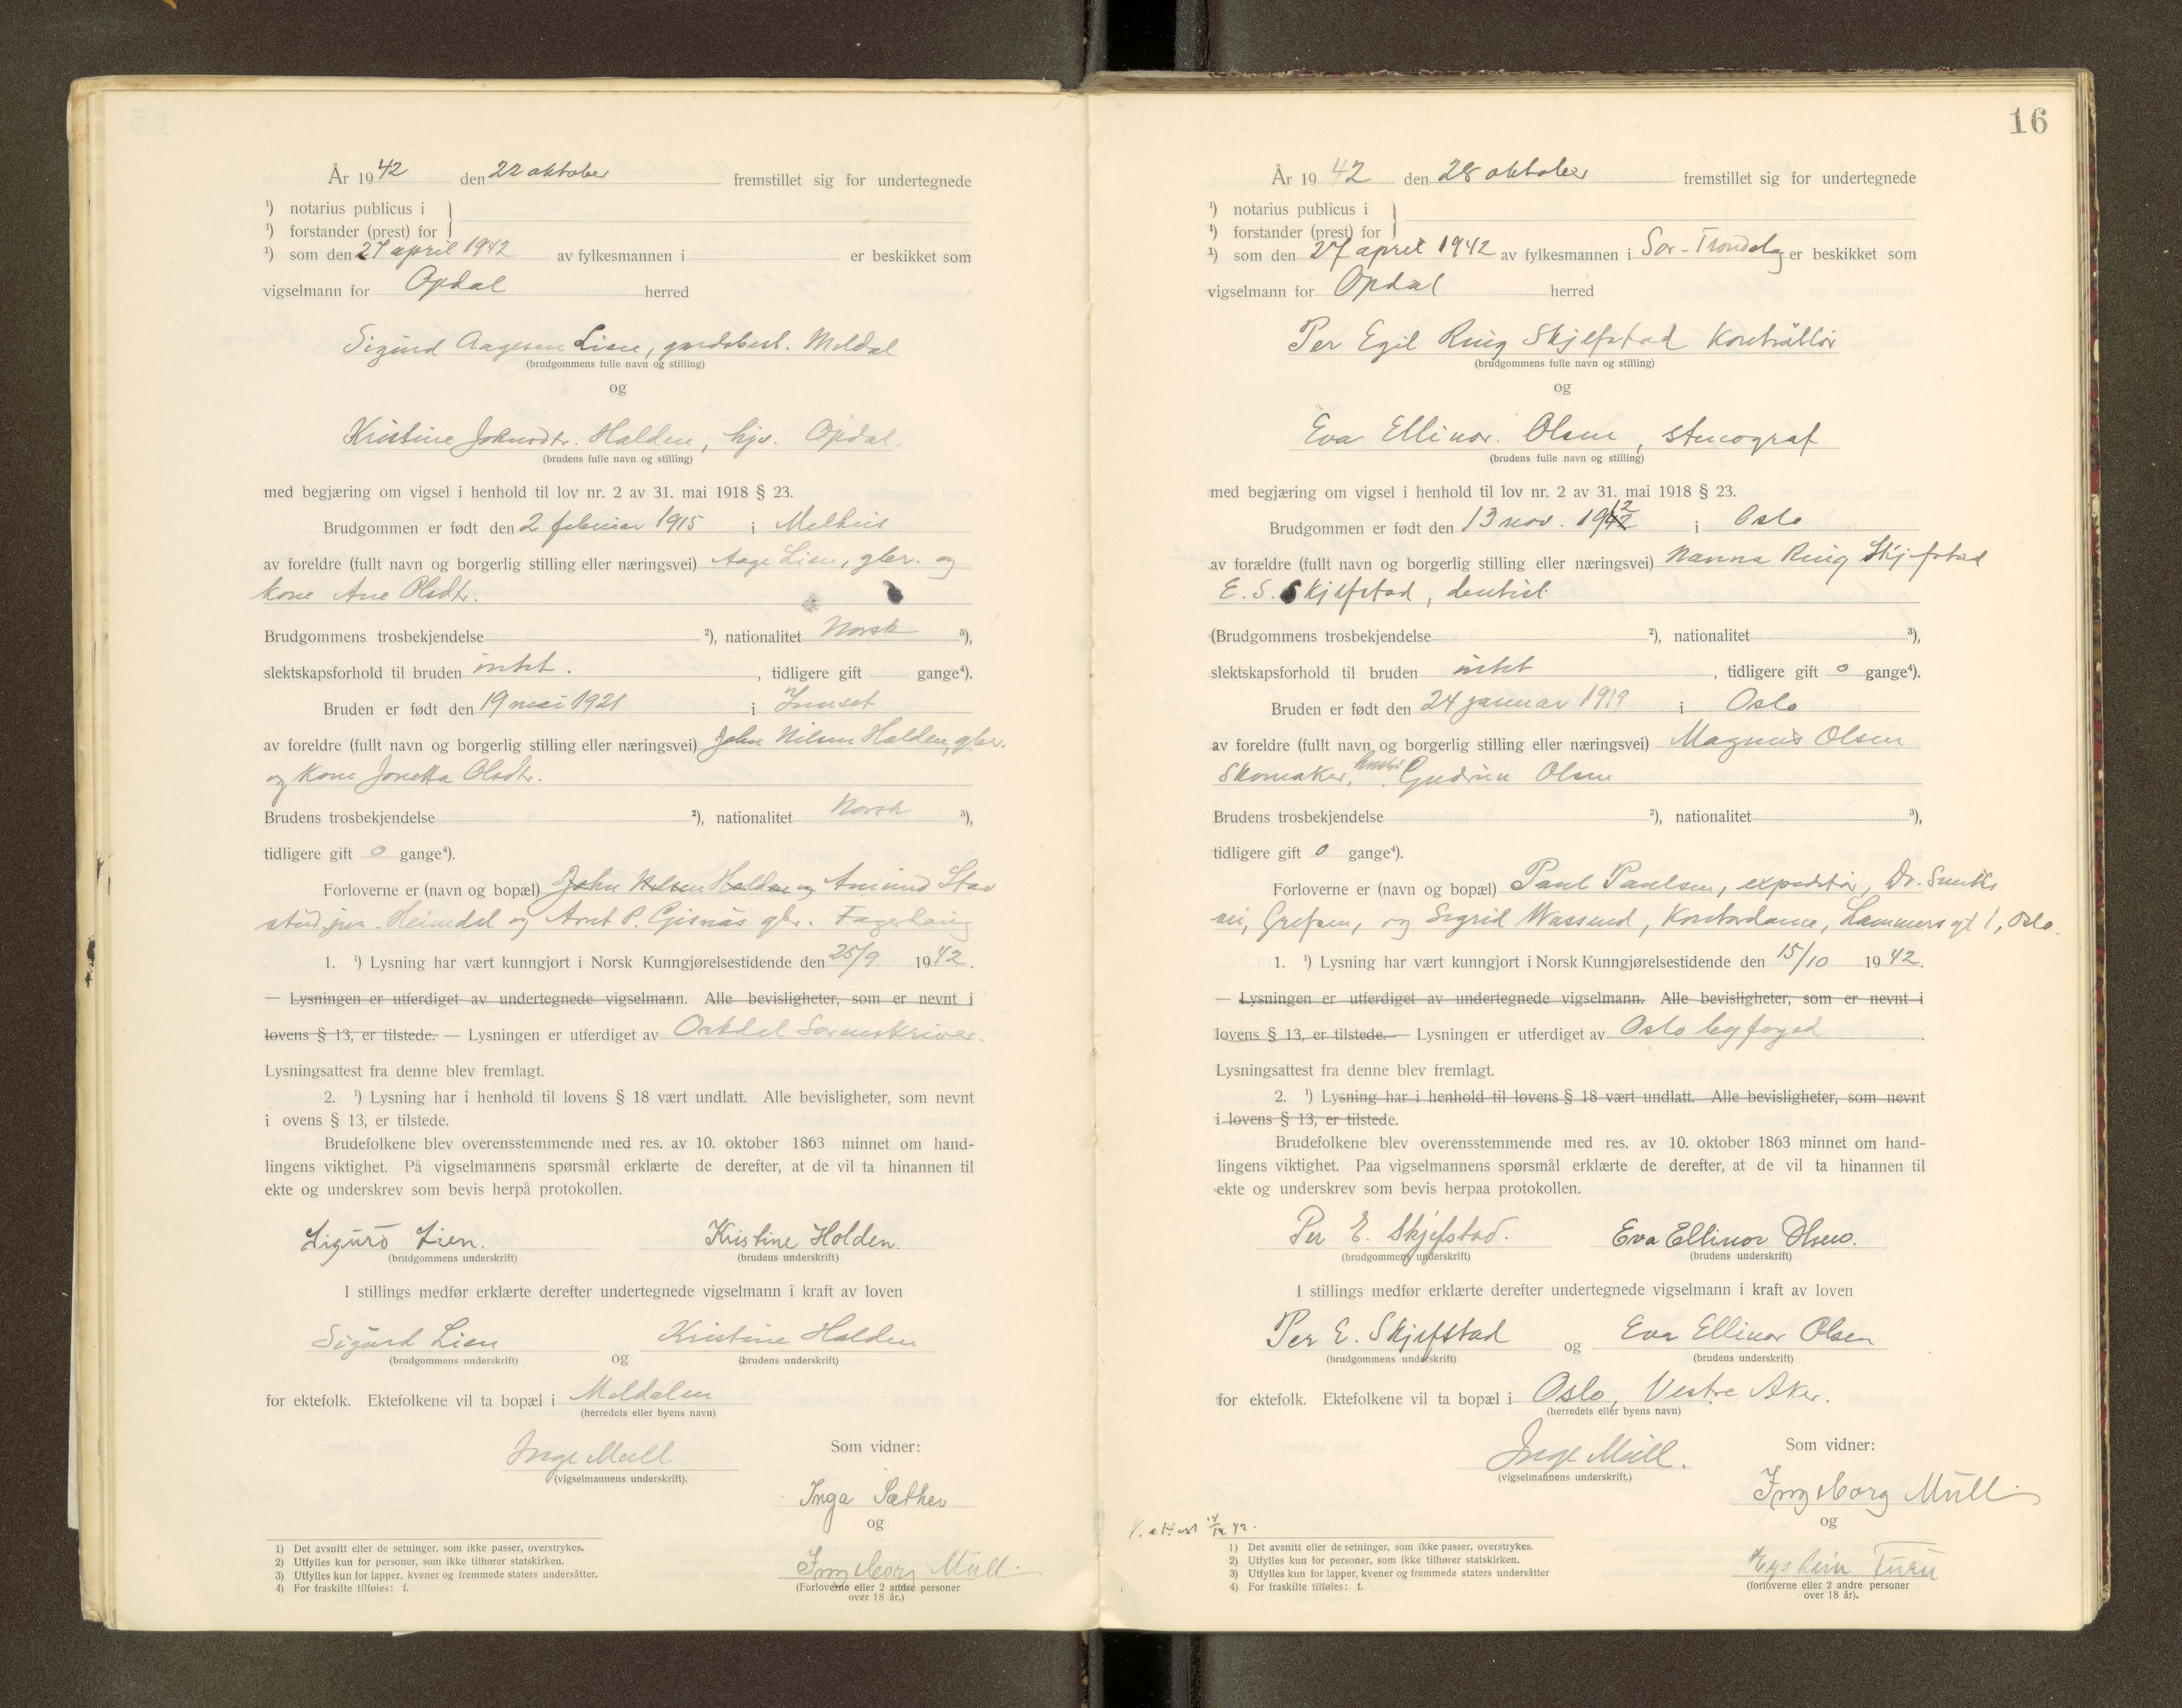 År 1942 den 22 oktober fremstillet sig for undertegnede
¹) notarius publicus i
¹) forstander (prest) for
¹) som den 27 april 1942 av fylkesmannen i er beskikket som
vigselmann for Opdal herred
Sigurd Aagesen Lien, gardsbest. Meldal
(brudgommens fulle navn og stilling)
og
Kristine Johnsdtr. Halden, hjv. Opdal.
(brudens fulle navn og stilling)
med begjæring om vigsel i henhold til lov nr. 2 av 31. mai 1918 § 23.
Brudgommen er født den 2 februar 1915 i Melhus
av foreldre (fullt navn og borgerlig stilling eller næringsvei) Aage Lien, gbr. og
kone Ane Olsdtr.
Brudgommens trosbekjendelse ²), nationalitet Norsk ³),
slektskapsforhold til bruden intet. , tidligere gift gange⁴).
Bruden er født den 19 mai 1921 i Innset
av foreldre (fullt navn og borgerlig stilling eller næringsvei) John Nilsen Halden, gbr.
og kone Jonetta Olsdtr.
Brudens trosbekjendelse ²), nationalitet Norsk ³),
tidligere gift 0 gange⁴).
Forloverne er (navn og bopæl) John Nilsen Halden og Amund Stav
stud. jur. Heimdal og Arnt P. Gisnås gbr. Fagerhaug
1. ¹) Lysning har vært kunngjort i Norsk Kunngjørelsestidende den 25/9 1942.
— Lysningen er utferdiget av undertegnede vigselmann. Alle bevisligheter, som er nevnt i
lovens § 13, er tilstede. — Lysningen er utferdiget av Orkdal Sorenskriver.
Lysningsattest fra denne blev fremlagt.
2. ¹) Lysning har i henhold til lovens § 18 vært undlatt. Alle bevisligheter, som nevnt
i ovens § 13, er tilstede.
Brudefolkene blev overensstemmende med res. av 10. oktober 1863 minnet om hand-
lingens viktighet. På vigselmannens spørsmål erklærte de derefter, at de vil ta hinannen til
ekte og underskrev som bevis herpå protokollen.
Sigurd Lien. Kristine Holden.
(brudgommens underskrift) (brudens underskrift)
I stillings medfør erklærte derefter undertegnede vigselmann i kraft av loven
Sigurd Lien og Kristine Halden
(brudgommens underskrift) (brudens underskrift)
for ektefolk. Ektefolkene vil ta bopæl i Meldalen
(herredets eller byens navn)
Inge Mull
(vigselmannens underskrift).
Som vidner:
Inga Sæther
og
Ingeborg Müll.
(Forloverne eller 2 andre personer
over 18 år.)
1) Det avsnitt eller de setninger, som ikke passer, overstrykes.
2) Utfylles kun for personer, som ikke tilhører statskirken.
3) Utfylles kun for lapper, kvener og fremmede staters undersåtter.
4) For fraskilte tilføies: f.
16
År 1942 den 28 oktober fremstillet sig for undertegnede
¹) notarius publicus i
¹) forstander (prest) for
¹) som den 27 april 1942 av fylkesmannen i Sør-Trøndelag er beskikket som
vigselmann for Opdal herred
Per Egil Ring Skjefstad Kontrollør
(brudgommens fulle navn og stilling)
og
Eva Ellinor Olsen, stenograf
(brudens fulle navn og stilling)
med begjæring om vigsel i henhold til lov nr. 2 av 31. mai 1918 § 23.
Brudgommen er født den 13 nov. 1912 i Oslo
av forældre (fullt navn og borgerlig stilling eller næringsvei) Nanna Ring Skjefstad
E. S. Skjefstad, dentist
(Brudgommens trosbekjendelse ²), nationalitet ³),
slektskapsforhold til bruden intet , tidligere gift 0 gange⁴).
Bruden er født den 24 januar 1919 i Oslo
av foreldre (fullt navn og borgerlig stilling eller næringsvei) Magnus Olsen
Skomaker, hustru Gudrun Olsen
Brudens trosbekjendelse ²), nationalitet ³),
tidligere gift 0 gange⁴).
Forloverne er (navn og bopæl) Paul Paulsen, expeditør, Dr. Smiths
vei, Grefsen, og Sigrid Wassend, Kontordame, Lammersgt 1, Oslo.
1. ¹) Lysning har vært kunngjort i Norsk Kunngjørelsestidende den 15/10 1942.
— Lysningen er utferdiget av undertegnede vigselmann. Alle bevisligheter, som er nevnt i
lovens § 13, er tilstede. — Lysningen er utferdiget av Oslo byfoged.
Lysningsattest fra denne blev fremlagt.
2. ¹) Lysning har i henhold til lovens § 18 vært undlatt. Alle bevisligheter, som nevnt
i lovens § 13, er tilstede.
Brudefolkene blev overensstemmende med res. av 10. oktober 1863 minnet om hand-
lingens viktighet. Paa vigselmannens spørsmål erklærte de derefter, at de vil ta hinannen til
ekte og underskrev som bevis herpaa protokollen.
Per E. Skjefstad. Eva Ellinor Olsen.
(brudgommens underskrift) (brudens underskrift)
I stillings medfør erklærte derefter undertegnede vigselmann i kraft av loven
Per E. Skjefstad og Eva Ellinor Olsen
(brudgommens underskrift) (brudens underskrift)
for ektefolk. Ektefolkene vil ta bopæl i Oslo, Vestre Aker.
(herredets eller byens navn)
Inge Müll.
(vigselmannens underskrift.)
Som vidner:
Ingeborg Müll.
og
Turu
(forloverne eller 2 andre personer
over 18 år).
1) Det avsnitt eller de setninger, som ikke passer, overstrykes.
2) Utfylles kun for personer, som ikke tilhører statskirken.
3) Utfylles kun for lapper, kvener og fremmede staters undersåtter
4) For fraskilte tilføies: f.